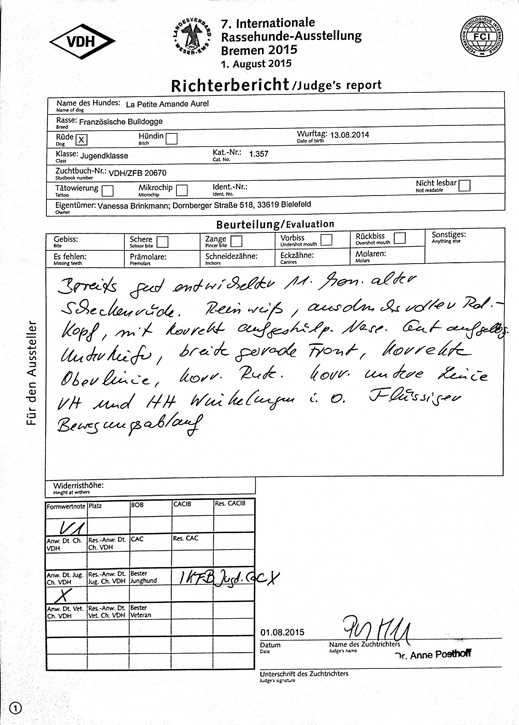 VDH
LANDESVERBAND
WESER-EMS
7. Internationale
Rassehunde-Ausstellung
Bremen 2015
1. August 2015
FCI
Richterbericht/Judge's report
Name des Hundes: La Petite Amande Aurel
Name of dog
Rasse: Französische Bulldogge
Breed
Rüde X Hündin Wurftag: 13.08.2014
Dog Bitch Date of birth
Klasse: Jugendklasse Kat.-Nr.: 1.357
Class Cat. No.
Zuchtbuch-Nr.: VDH/ZFB 20670
Studbook number
Tätowierung Mikrochip Ident.-Nr.: Nicht lesbar
Tattoo Microchip Ident. No. Not readable
Eigentümer: Vanessa Brinkmann; Dornberger Straße 518, 33619 Bielefeld
Owner
Beurteilung/Evaluation
Gebiss: Schere Zange Vorbiss Rückbiss Sonstiges:
Bite Scissor bite Pincer bite Undershot mouth Overshot mouth Anything else
Es fehlen: Prämolare: Schneidezähne: Eckzähne: Molaren:
Missing teeth Premolars Incisors Canines Molars
Bereits gut entwickelter 11. Mon. alter
Scheckenrüde. Rein weiß, ausdrucksvoller
Kopf, mit korrekt Nase. Gut
Unterkiefer, breite gerade Front, korrekte
Oberlinie, korr. Rute. korr. untere Linie
VH und HH Winkelungen i. O. Flüssiger
Bewegungsablauf
Für den Aussteller
Widerristhöhe:
Height at withers
Formwertnote Platz BOB CACIB Res. CACIB
V1
Anw. Dt. Ch. VDH Res.-Anw. Dt. Ch. VDH CAC Res. CAC
Anw. Dt. Jug. Ch. VDH Res.-Anw. Dt. Jug. Ch. VDH Bester Junghund IKFB Jugd. CAC X
X
Anw. Dt. Vet. Ch. VDH Res.-Anw. Dt. Vet. Ch. VDH Bester Veteran
01.08.2015
Datum Name des Zuchtrichters
Date Judge's name
Dr. Anne Posthoff
Unterschrift des Zuchtrichters
Judge's signature
1